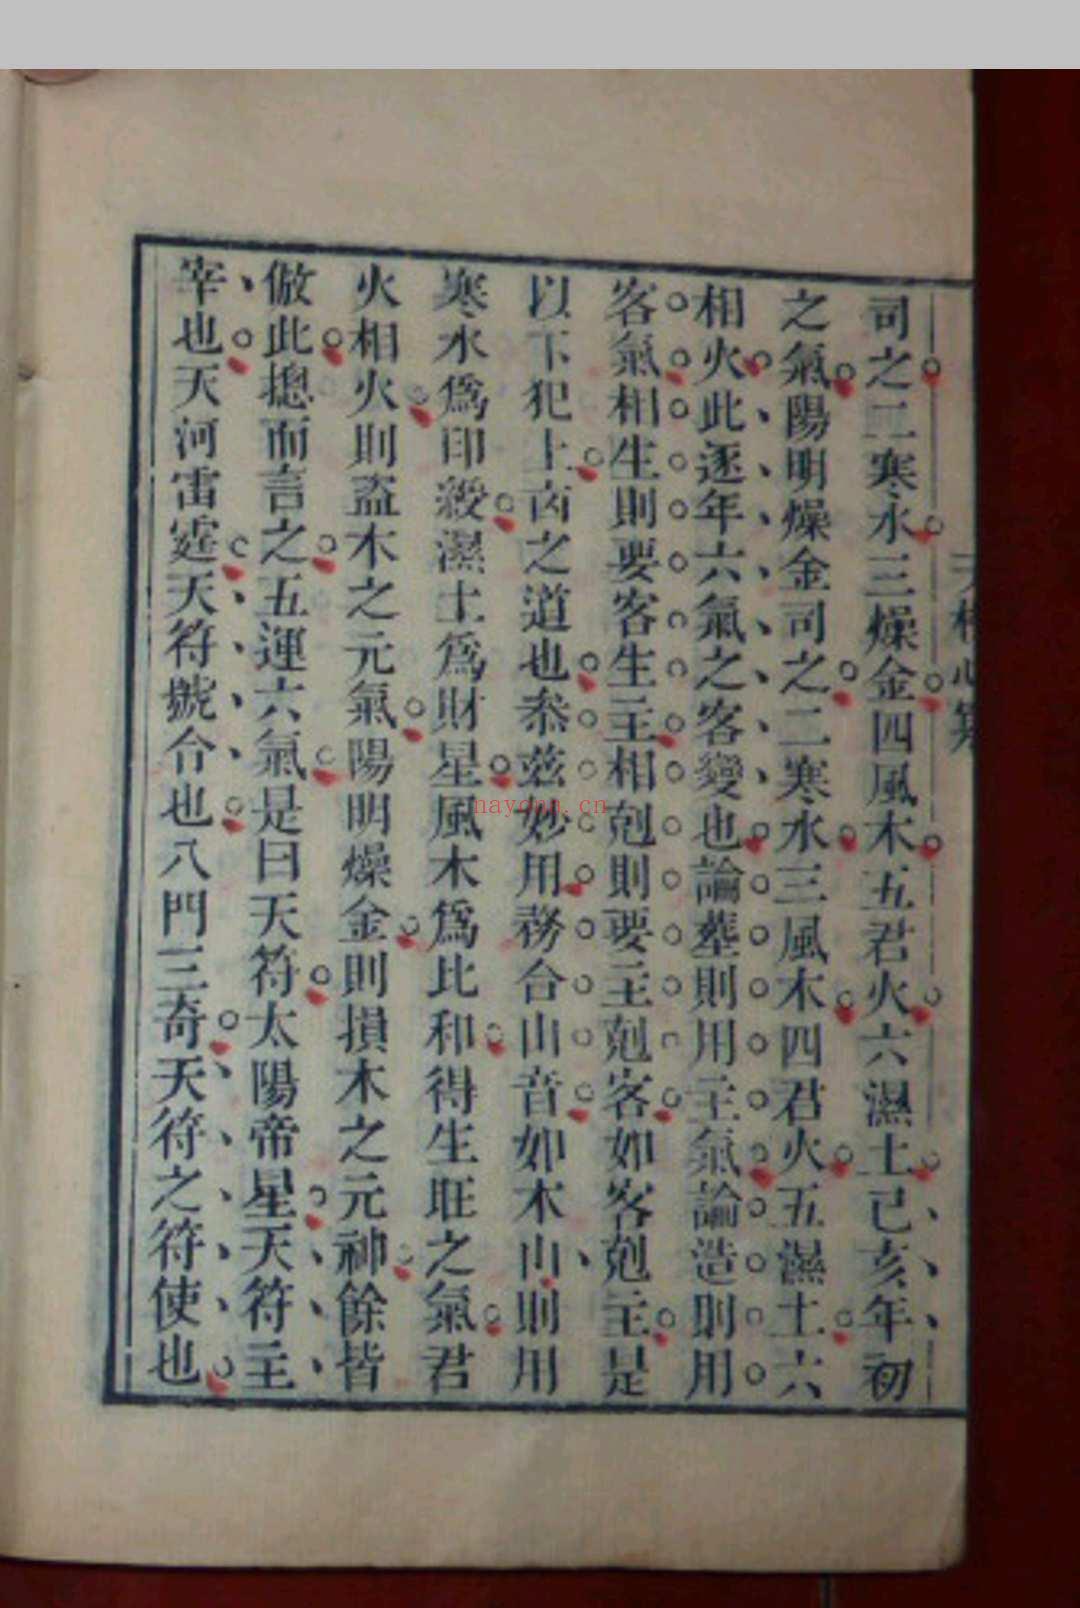 司之二寒水三燥金四風木五君火六濕土己亥年初
之氣陽明燥金司之二寒水三風木四君火五濕土六
相火此逐年六氣之客變也論塟則用主氣論造則用
客氣相生則要客生主相剋則要主剋客如客剋主是
以下犯上卤之道也叅兹妙用務合山音如木山則用
寒水爲印殺濕土爲財星風木爲比和得生旺之氣君
火相火則盗木之元氣陽明燥金則損木之元神餘皆
倣此摠而言之五運六氣是曰天符太陽帝星天符主
宰也天河雷霆天符號令也八門三奇天符之符使也
心
nayong.cn